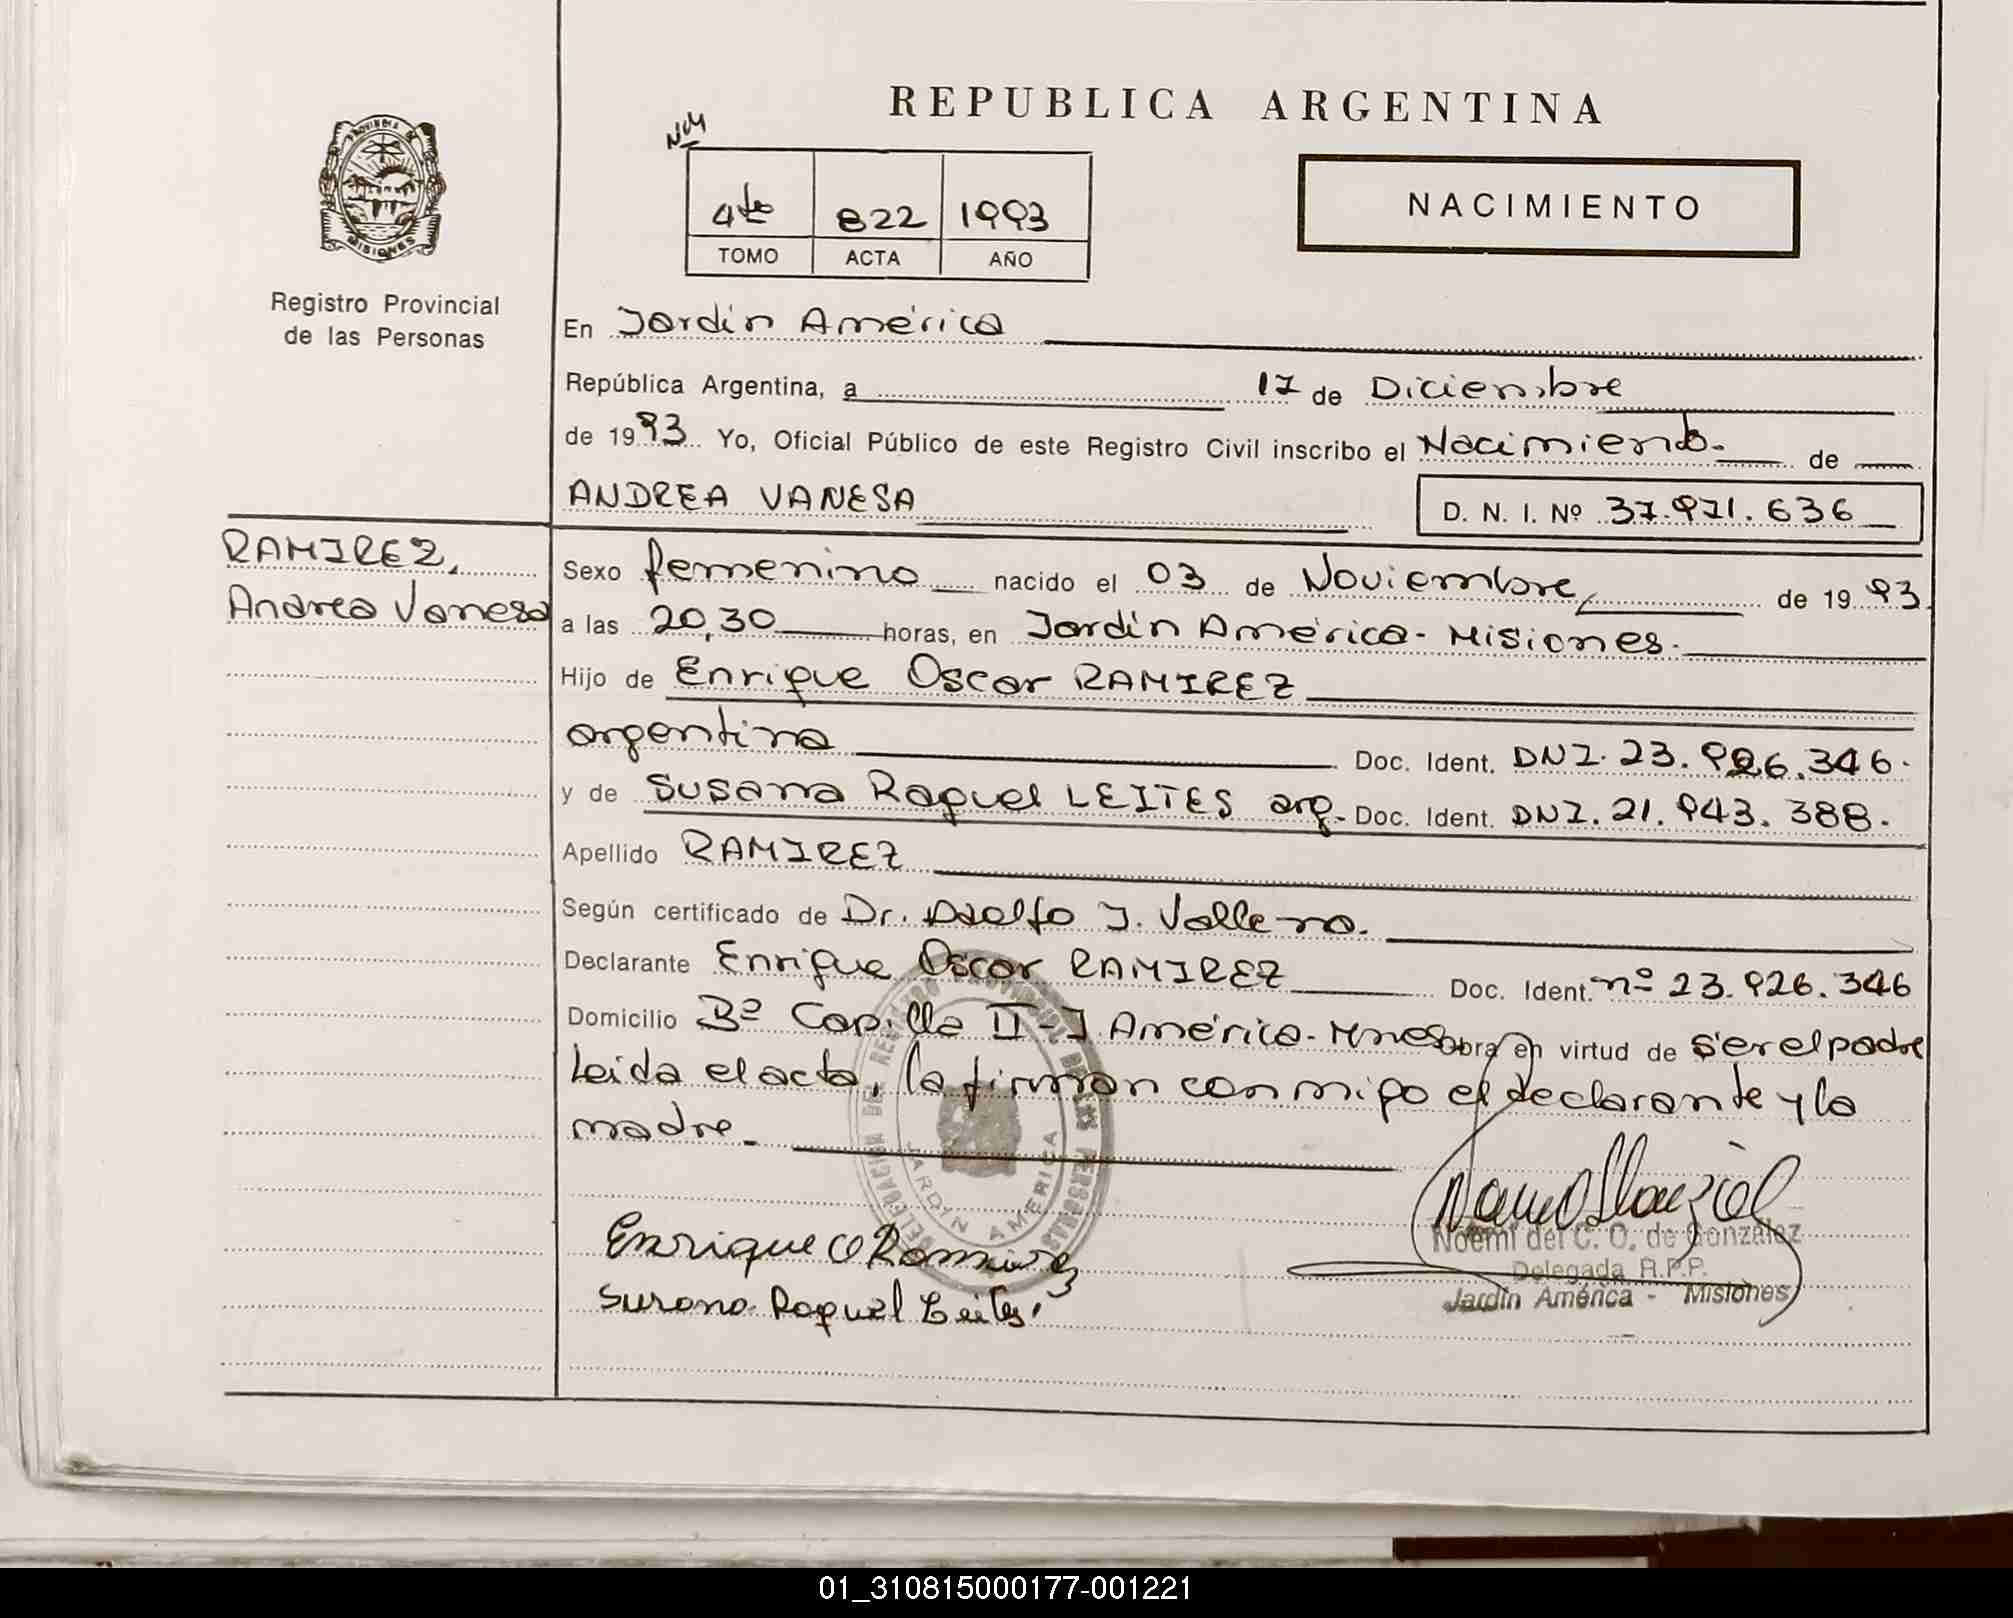 REPUBLICA ARGENTINA
PROVINCIA DE
MISIONES
Registro Provincial
de las Personas
4to 822 1993
TOMO ACTA AÑO
NACIMIENTO
En Jardín América
República Argentina, a 17 de Diciembre
de 1993 Yo, Oficial Público de este Registro Civil inscribo el Nacimiento. de
ANDREA VANESA
D. N. I. Nº 37.971.636
RAMIREZ,
Andrea Vanesa
Sexo femenino nacido el 03 de Noviembre, de 1993
a las 20,30 horas, en Jardín América - Misiones.
Hijo de Enrique Oscar RAMIREZ
argentina Doc. Ident. DNI. 23.926.346.
y de Susana Raquel LEITES arg. Doc. Ident. DNI. 21.943.388.
Apellido RAMIREZ
Según certificado de Dr. Adolfo J.
Declarante Enrique Oscar RAMIREZ Doc. Ident. nº 23.926.346
Domicilio Bº Capilla II - J. América - Mnes. Obra en virtud de ser el padre
Leida el acta, la firman conmigo el declarante y la
madre.
DELEGACION DEL REGISTRO PROVINCIAL DE LAS PERSONAS
JARDIN AMERICA
Enrique O Ramirez
Susana Raquel Leites
Noemí del C. O. de González
Delegada R.P.P.
Jardín América - Misiones
01_310815000177-001221